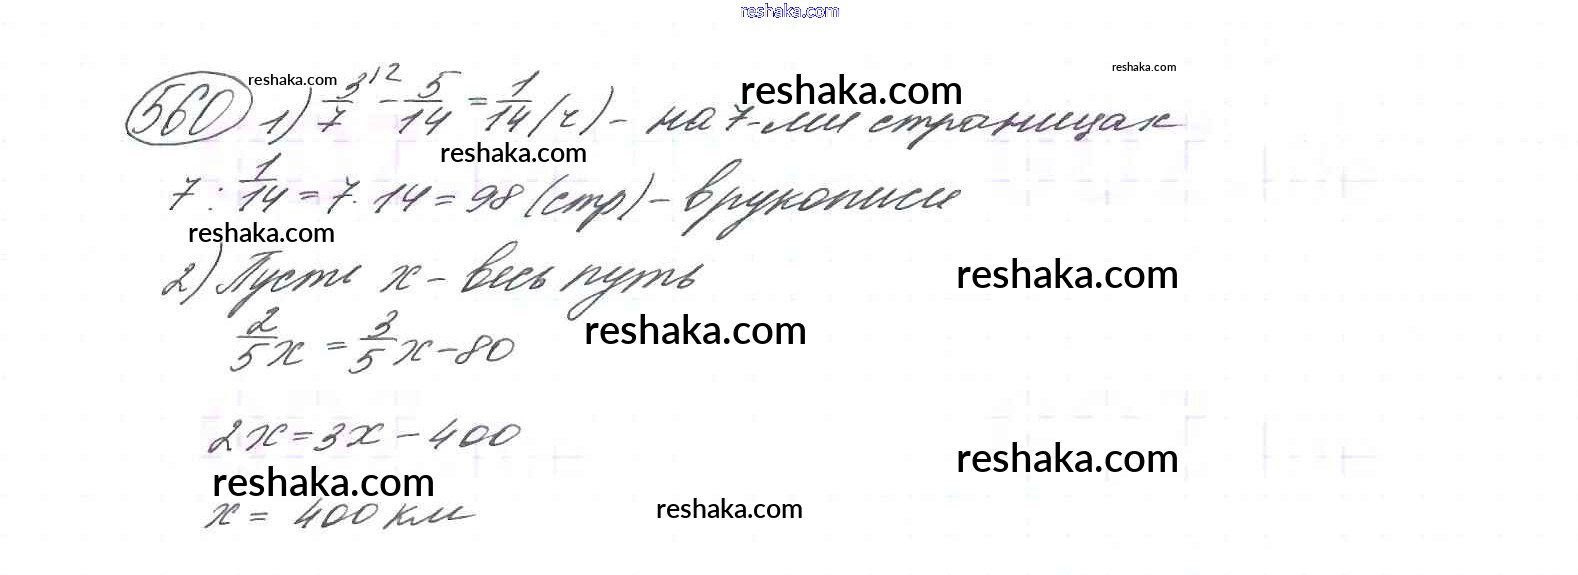 reshaka.com
560 reshaka.com 1) 3/7 ^2 - 5/14 = 1/14 (ч) - на 7-ми страницах reshaka.com reshaka.com
reshaka.com
7 : 1/14 = 7 · 14 = 98 (стр) - в рукописи
reshaka.com
2) Пусть x - весь путь reshaka.com
2/5 x = 3/5 x - 80 reshaka.com
2x = 3x - 400 reshaka.com
reshaka.com
x = 400 км reshaka.com